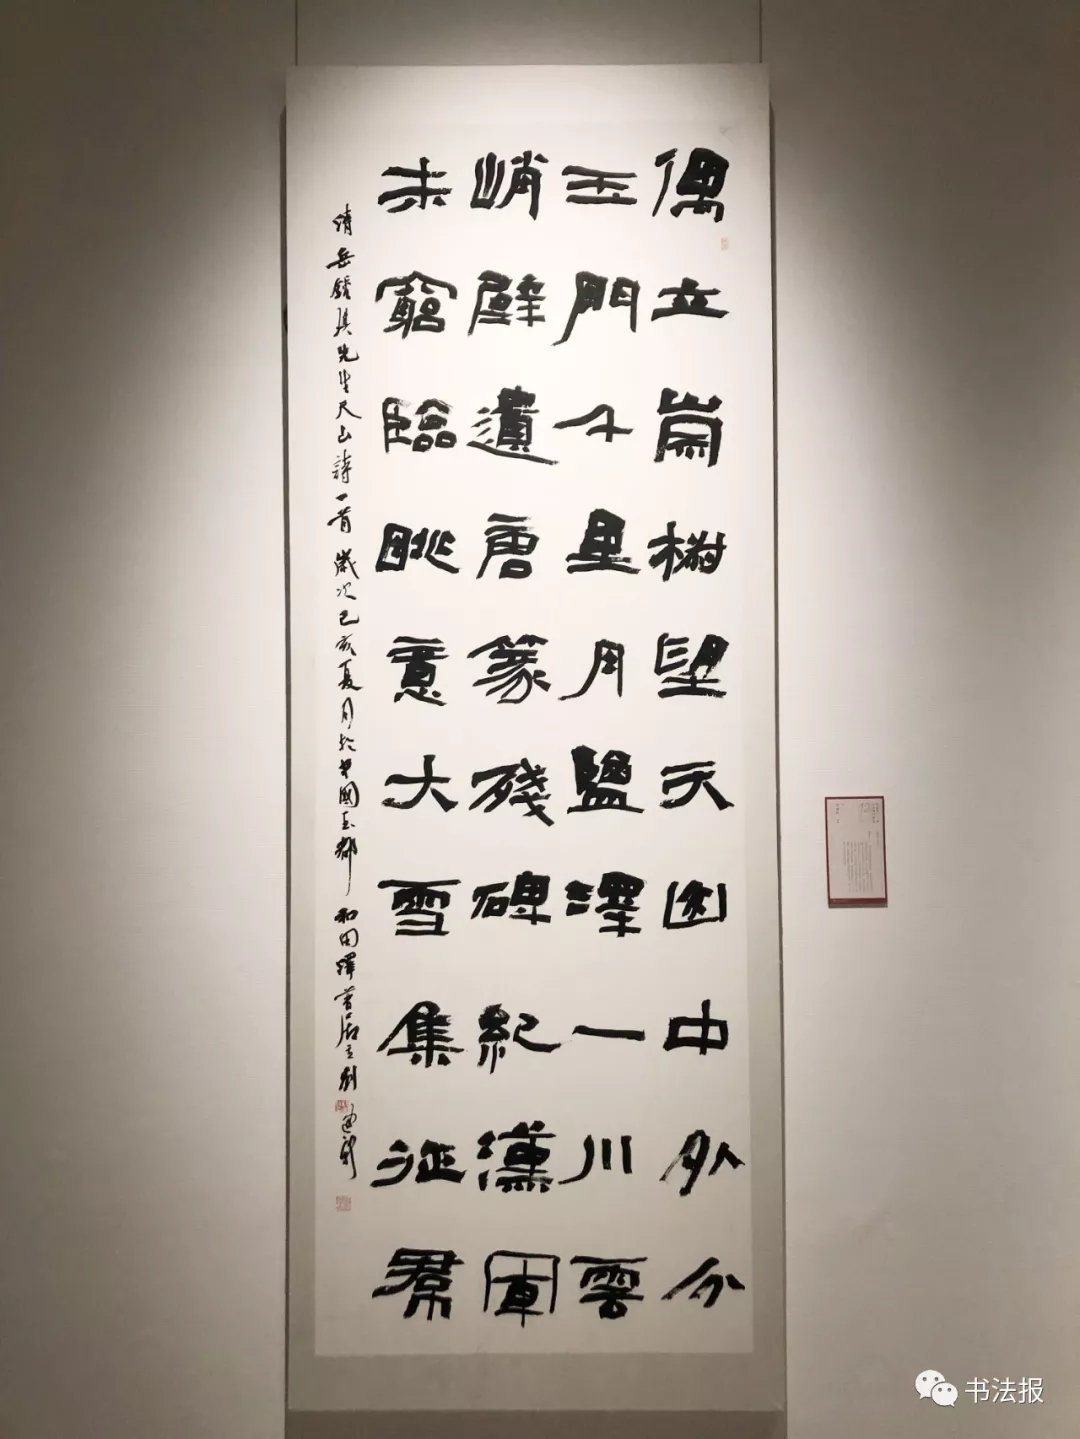 偶立崇椒望天山中外分
玉門千里月鹽澤一川雲
峭壁遺唐篆殘碑紀漢軍
未窮臨眺意大雪集征羣
清岳鍾琪先生天山詩一首歲次己亥夏月於中國玉都和田
书法报